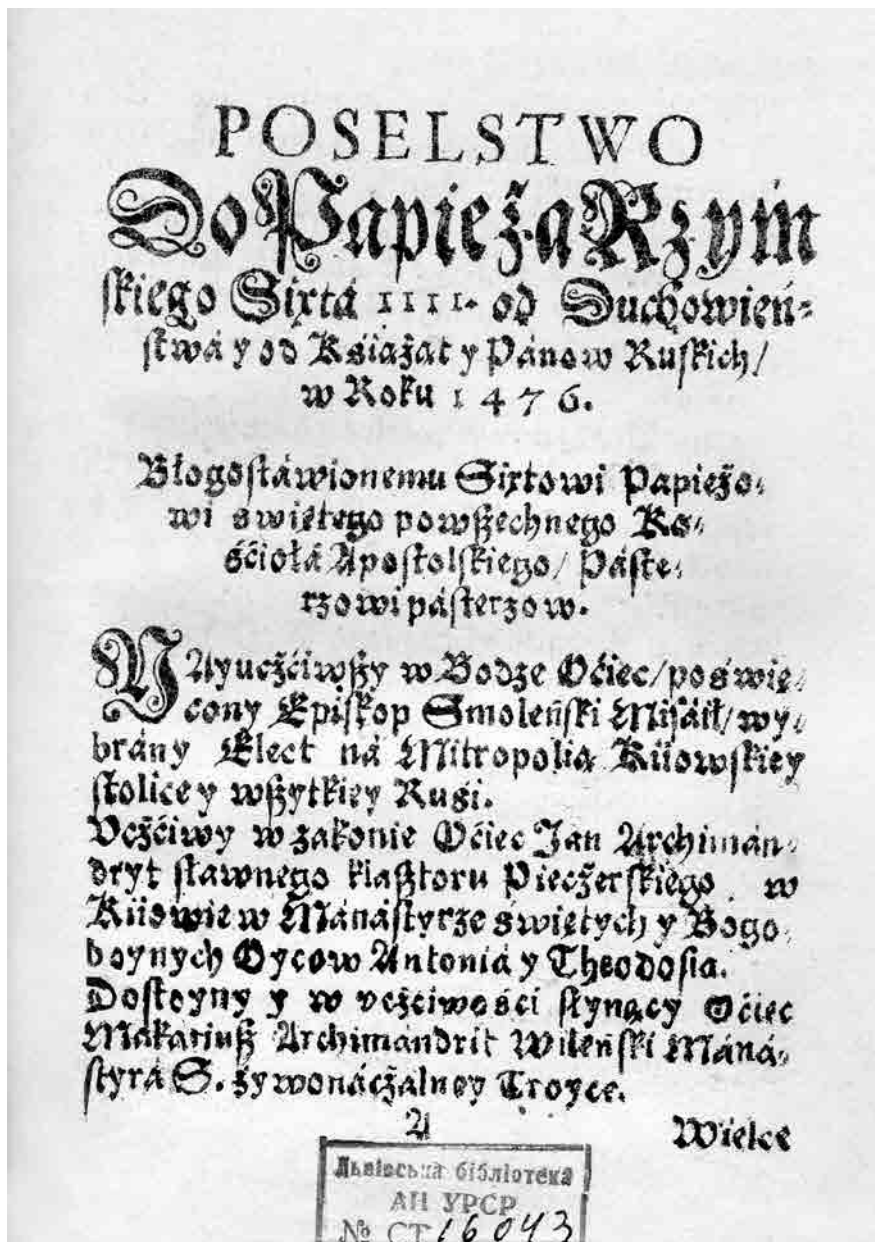 POSELSTWO
Do Papieżá Rzym
skiego Sixtá IIII. od Duchowień-
stwá y od Książąt y Pánow Ruskich/
w Roku 1476.
Błogosłáwionemu Sixtowi Papieżo-
wi swiętego powszechnego Ko-
śćiołá Apostolskiego/ Páste-
rzowi pásterzow.
NAyucżćiwszy w Bodze Oćiec/ poswię-
cony Episkop Smoleński Misáił/ wy-
brány Elect ná Mitropolią Kiiowskiey
stolice y wszytkiey Rusi.
Vcżćiwy w zakonie Oćiec Jan Archimán-
dryt sławnego klasztoru Piecżerskiego w
Kiiowie w Mánástyrze swiętych y Bogo-
boynych Oycow Antoniá y Theodosia.
Dostoyny y w vcżćiwośći słynący Oćiec
Mákariusz Archimándrit Wileński Máná-
styrá S. żywonácżalney Troyce.
A
Wielce
Львівська бібліотека
АН УРСР
№ СТ 16043